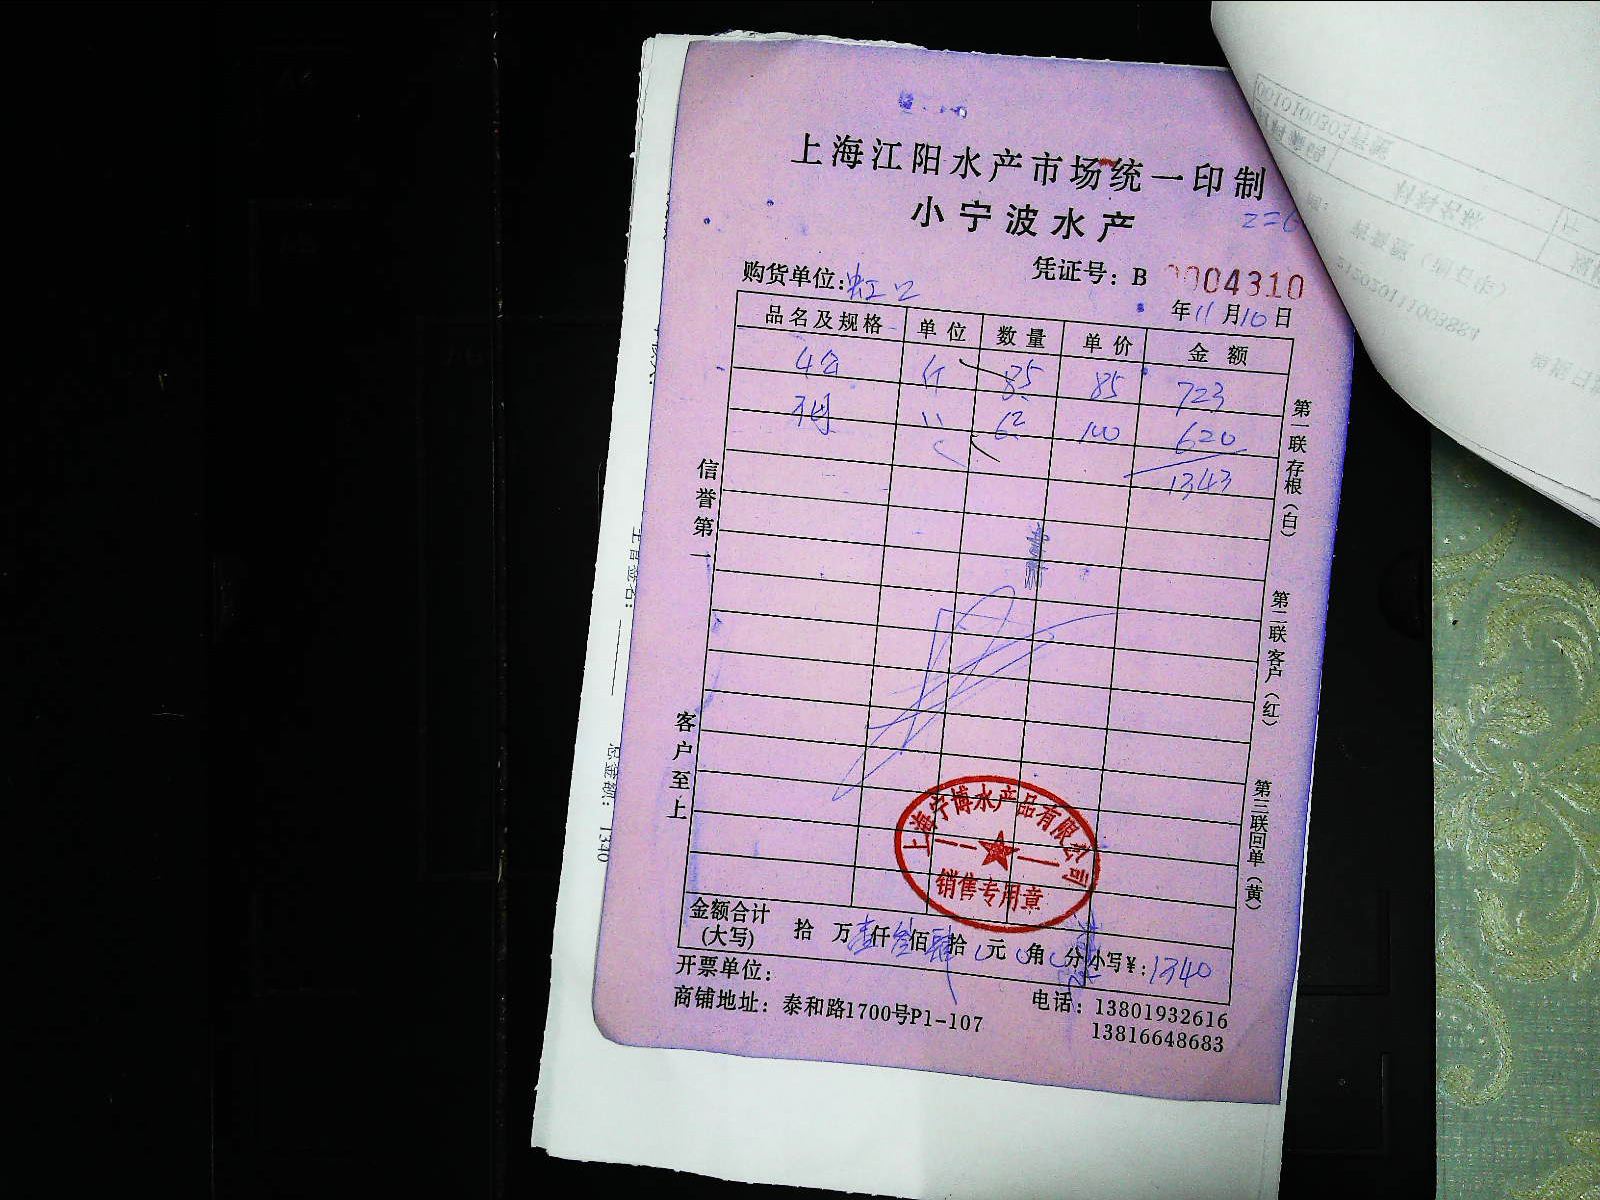 上海江阳水产市场统一印制
小宁波水产
凭证号：B 0004310
购货单位：虹口
年11月10日
品名及规格 单位 数量 单价 金额
4公 斤 85 85 723
62 100 620
1343
信誉第一
客户至上
第一联存根（白）
第二联客户（红）
第三联回单（黄）
上海宁博水产品有限公司
销售专用章
金额合计(大写) 拾 万壹仟叁佰肆拾 元 角 分 小写¥：1340
开票单位：
商铺地址：泰和路1700号P1-107
电话：13801932616
13816648683
总金额：1340